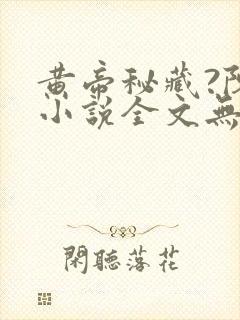 黄帝秘藏?阝
小說全文無
閑聽落花